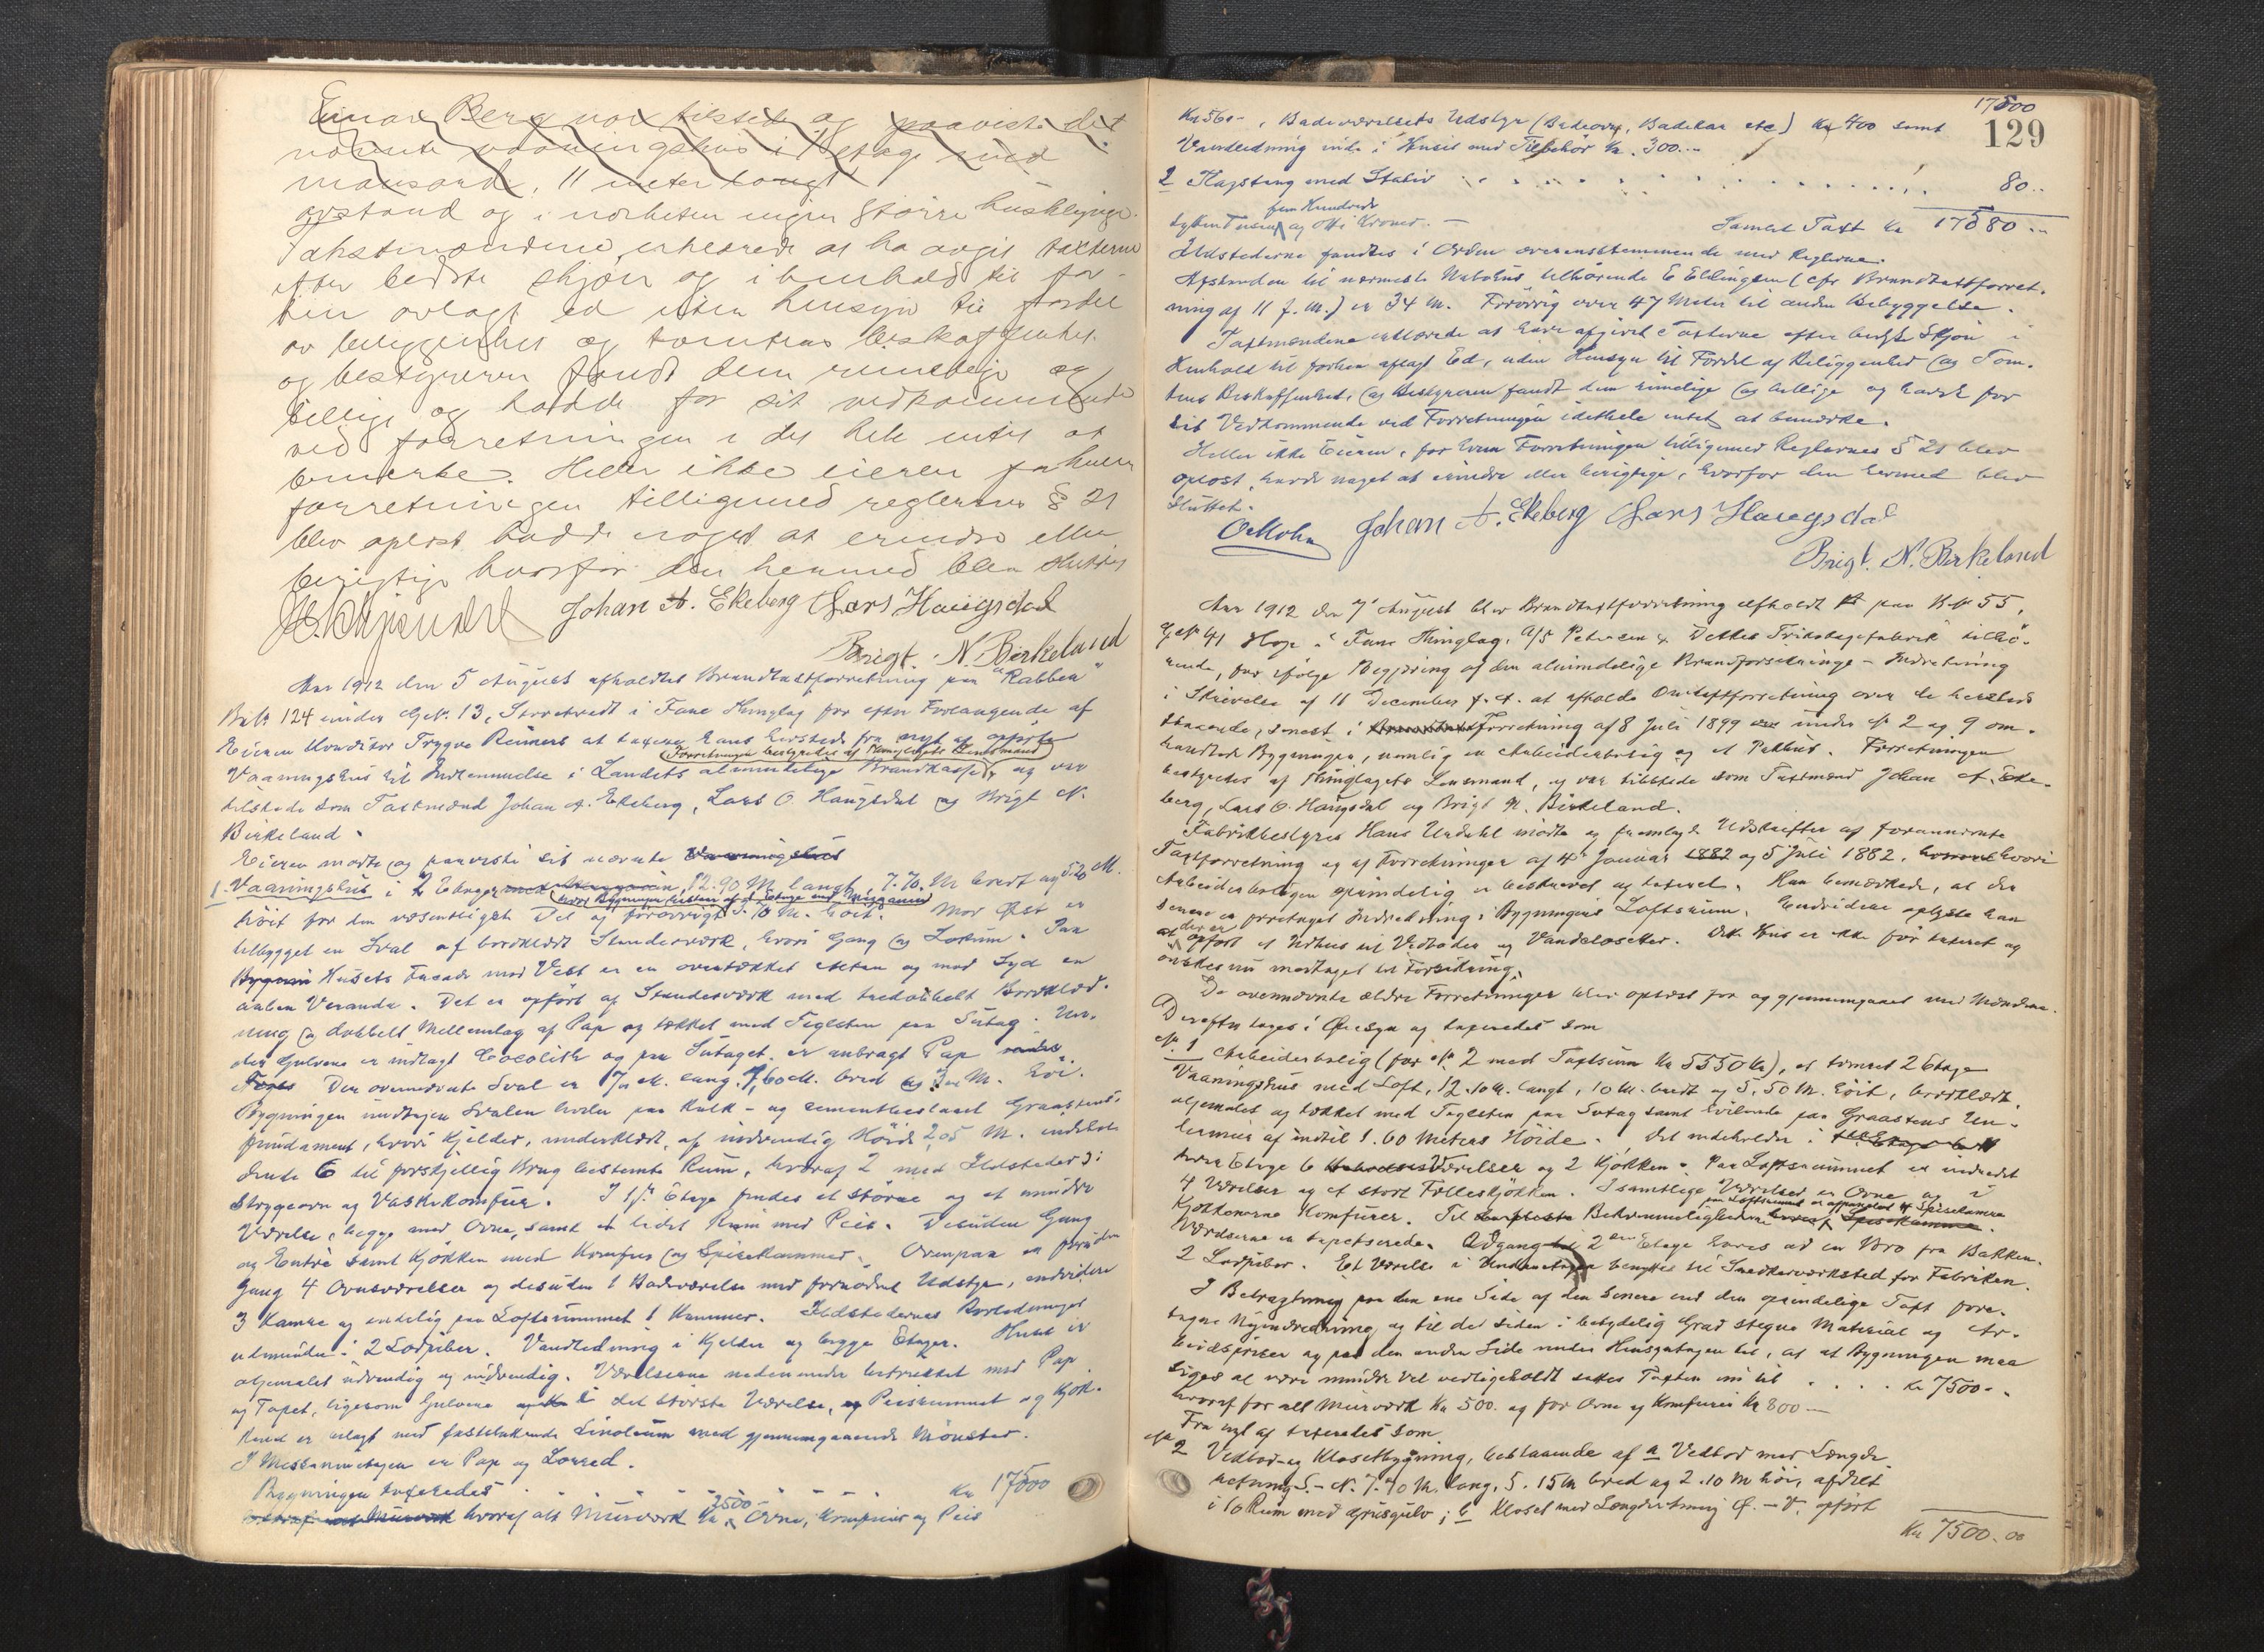 Einar Berg var tilstede og paaviste det
nævnte vaaningshus i 1 etage med
mansard, 11 meter langt
avstand og i nærheten ingen større husklynge.
Takstmændene erklærede at ha avgit taxterne
efter bedste skjøn og i henhold til for-
hen avlagt ed uten hensyn til fordel
av beliggenhet og tomtens beskaffenhet.
og bestyreren fandt dem rimelige og
billige og hadde for sit vedkommende
ved forretningen i det hele intet at
bemerke. Heller ikke eieren for hvem
forretningen tilligemed reglernes § 21
blev oplæst hadde noget at erindre eller
berigtige hvorfor den hermed blev sluttet
Johan A. Ekeberg Lars Haugsdal
Brigt. N. Birkeland
Aar 1912 den 5 August afholdtes Brandtaxtforretning paa "Rabben"
Br№ 124 under G№ 13, Storetvedt i Fane Thinglag for efter Forlangende af
Eieren Konditor Trygve Reimers at taxere hans hersteds fra nyt af opførte
(Forretningen bestyredes af Thinglagets Lensmand)
Vaaningshus til Indlemmelse i Landets almindelige Brandkasse, og var
tilstede som Taxtmænd Johan A. Ekeberg, Lars O. Haugsdal og Brigt N.
Birkeland.
Eieren mødte og paaviste sit nævnte Vaaningshus
1. Vaaningshus i 2 Etager 12.90 M. langt, 7.70 M bredt og 5.20 M.
hvor Bygningen bestaar af 1 Etage med Mezzanin
höit for den væsentligste Del og forøvrigt 3.70 M. höit. Mod Øst er
tilbygget en Sval af bordklædt Stenderværk, hvori Gang og Lokum. Paa
Husets Facade mod Vest er en overtækket Altan og mod Syd en
aaben Veranda. Det er opført af Stenderværk med tredobbelt Bordklæd-
ning og dobbelt Mellemlag af Pap og tækket med Teglsten paa Sutag. Un-
der Gulvene er indlagt Cocolith og paa Sutaget er anbragt Pap
Den ovennævnte Sval er M. lang, 1,60 M. bred og M. høi.
Bygningen undtagen Svalen hviler paa Kalk- og cementbeslaaet Graastens-
fundament, hvori Kjelder, underklædt, af indvendig Höide 2,05 M. indehol-
dende 6 til forskjellig Brug bestemte Rum, hvoraf 2 med Ildsteder:
Strygeovn og Vaskekomfur. I 1ste Etage findes et större og et mindre
Værelse, begge med Ovne, samt et lidet Rum med Peis. Desuden Gang
og Entré samt Kjökken med Komfur og Spisekammer. Ovenpaa er foruden
Gang 4 Ovnsværelser og desuden 1 Badeværelse med fornödent Udstyr, endvidere
3 Kamre og endelig paa Loftsrummet 1 Kammer. Ildstedernes Rørledninger
udmunder i 2 Lodpiber. Vandledning i Kjelder og begge Etager. Huset er
oljemalet udvendig og indvendig. Værelserne nedenunder betrukket med Pap
og Tapet, ligesom Gulvene i det störste Værelse, Peisrummet og Kjök-
kenet er belagt med fastklæbende Linoleum med gjennemgaaende Mönster.
I Messaninetagen er Pap og Lærred.
Bygningen taxeredes . . . . . . . . . Kr 17500
hvoraf alt Murværk Kr 3500.- Ovne, Komfurer og Peis
17500
129
Kr 560.-, Badeværelsets Udstyr (Badeovn, Badekar etc) Kr 400 samt
Vandledning inde i Huset med Tilbehör Kr. 300.-
2 Flagstang med Stativ . . . . . . . . . . 80..
fem Hundrede
Sytten Tusen og Otti Kroner. - Samlet Taxt Kr 17580..
Ildstederne fandtes i Orden overensstemmende med Reglerne.
Afstanden til nærmeste Nabohus tilhørende E Ellingsen (cfr Brandtaxtforret-
ning af 11 f. M.) er 34 M. Forövrig over 47 Meter til anden Bebyggelse.
Taxtmændene erklærede at have afgivet Taxterne efter bedste Skjön i
Henhold til forhen aflagt Ed, uden Hensyn til Fordel af Beliggenhed og Tom-
tens Beskaffenhed, og Bestyreren fandt dem rimelige og billige og havde for
sit Vedkommende ved Forretningen idethele intet at bemærke.
Heller ikke Eieren, for hvem Forretningen tilligemed Reglernes § 21 blev
oplæst, havde noget at erindre eller berigtige, hvorfor den hermed blev
sluttet.
O Mohn Johan A. Ekeberg Lars Haugsdal
Brigt. N. Birkeland
Aar 1912 den 7 August blev Brandtaxtforretning afholdt paa B№ 55,
G№ 41 Hop i Fane Thinglag, A/S Petersen & Dekkes Trikotagefabrik tilhö-
rende, for ifølge Begjæring af den almindelige Brandforsikrings-Indretning
i Skrivelse af 11 December f. A. at afholde Omtaxtforretning over de hersteds
staaende, senest i Forretning af 8 Juli 1899 under № 2 og 9 om-
handlede Bygninger, nemlig en Arbeiderbolig og et Pakhus. Forretningen
bestyredes af Thinglagets Lensmand, og var tilstede som Taxtmænd Johan A. Eke-
berg, Lars O. Haugsdal og Brigt N. Birkeland.
Fabrikbestyrer Hans Urdahl mødte og fremlagde Udskrifter af forannævnte
Taxtforretning og af Forretninger af 4de Januar 1882 og 5 Juli 1882, hvori
Arbeiderboligen oprindelig er beskrevet og taxeret. Han bemærkede, at der
senere er foretaget Indredning i Bygningens Loftsrum. Endvidere oplyste han
at der er opført et Udhus til Vedboder og Vandclosetter. Dette Hus er ikke før taxeret og
ønskes nu modtaget til Forsikring.
De ovennævnte ældre Forretninger blev oplæst for og gjennemgaaet med Mændene.
Derefter toges i Øiesyn og taxeredes som
№ 1 Arbeiderbolig (før № 2 med Taxtsum Kr 5550 Kr), et tømret 2 Etage
Vaaningshus med Loft, 12.10 M. langt, 10 M. bredt og 5.50 M. höit, bordklædt,
oljemalet og tækket med Teglsten paa Sutag samt hvilende paa Graastens Un-
termur af indtil 1.60 Meters Höide. Det indeholder i
hver Etage 6 Værelser og 2 Kjøkken. Paa Loftsrummet er indredet
4 Værelser og et stort Fælleskjökken. I samtlige Værelser er Ovne og i
Kjökkenerne Komfurer. Til Bekvemmelighederne paa Loftsrummet er afpanelet 4 Spisekamre.
Værelserne er tapetserede. Adgang til 2den Etage haves ad en Bro fra Bakken.
2 Lodpiber. Et Værelse i Underetagen benyttes til Snedkerværksted for Fabriken.
I Betragtning paa den ene Side af den senere end den oprindelige Taxt fore-
tagne Nyindredning og til de siden i betydelig Grad stegne Material og Ar-
beidspriser og paa den anden Side under Hensyntagen til, at Bygningen maa
siges at være mindre vel vedligeholdt sattes Taxten nu til . . . . Kr 7500..
hvoraf for alt Murværk Kr 500. og for Ovne og Komfurer Kr 800.-
Fra nyt af taxeredes som
№ 2 Vedbod- og Klosetbygning, bestaaende af a Vedbod med Længde-
retning S.-N. 7.70 M. lang, 5.15 M bred og 2.10 M höi, afdelt
i 10 Rum med grusgulv; b Kloset med Længderetning Ø.-V. opfört
Kr 7500.00